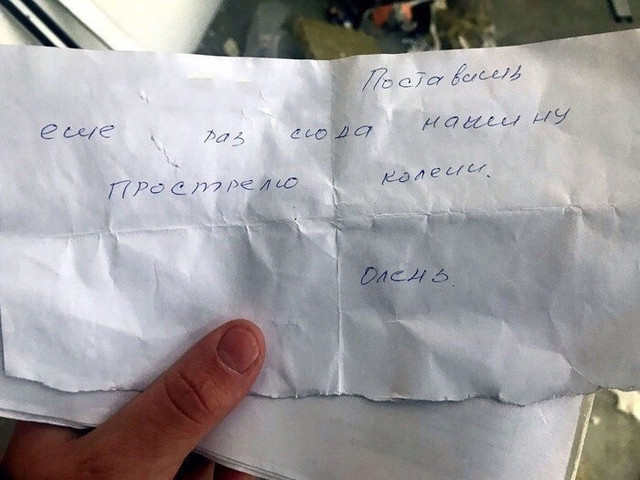 Поставишь
еще раз сюда машину
прострелю колени.
Олень.